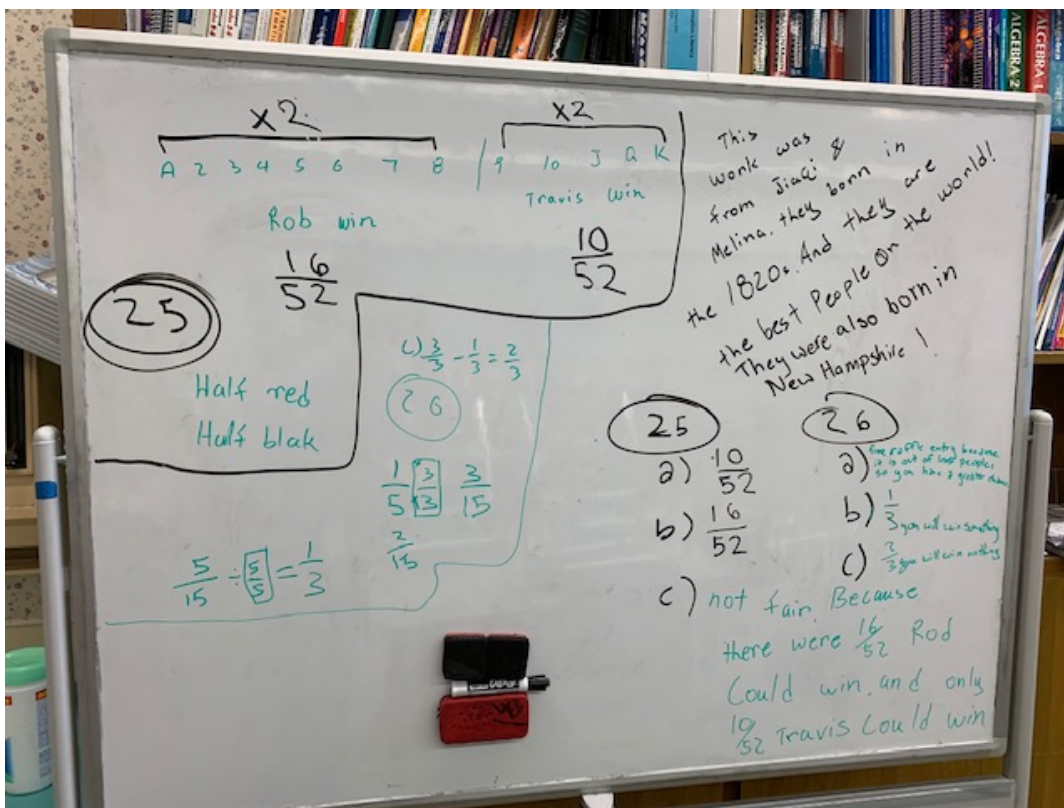 x2
x2
A 2 3 4 5 6 7 8 | 9 10 J Q K
Rob win
Travis win
16/52
10/52
25
Half red
Half blak
c) 3/3 - 1/3 = 2/3
26
1/5 3/3 3/15
2/15
5/15 ÷ 5/5 = 1/3
This
work was
from JiaQi &
Melina. they born in
the 1820s. And they are
the best People On the world!
They were also born in
New Hampshire!
25
a) 10/52
b) 16/52
c) not fair. Because
there were 16/52 Rod
Could win. and only
10/52 Travis Could win
26
a) raffle entry because
it is out of less people,
so you have a greater chance
b) 1/3 you will win something
c) 2/3 you will win nothing
EXPO
ALGEBRA 2
ALGEBRA 1